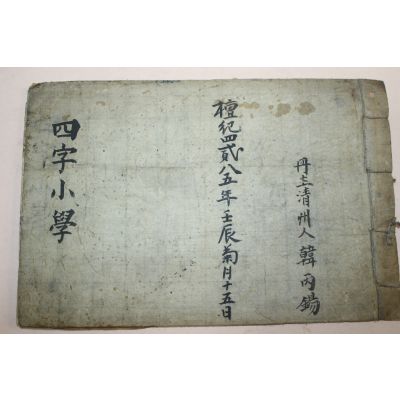 册主清州人 韓丙錫
檀紀四貳八五年壬辰菊月十五日
四字小學